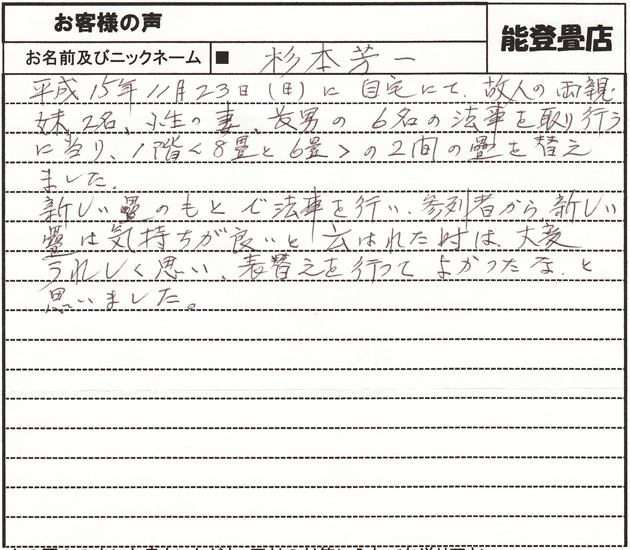 お客様の声
能登畳店
お名前及びニックネーム ■ 杉本芳一
平成15年11月23日(日)に自宅にて、故人の両親・
妹2名、小生の妻、長男の6名の法事を取り行う
に当り、1階<8畳と6畳>の2間の畳を替え
ました。
新しい畳のもとで法事を行い、参列者から新しい
畳は気持ちが良いと云はれた時は、大変
うれしく思い、表替えを行ってよかったな、と
思いました。